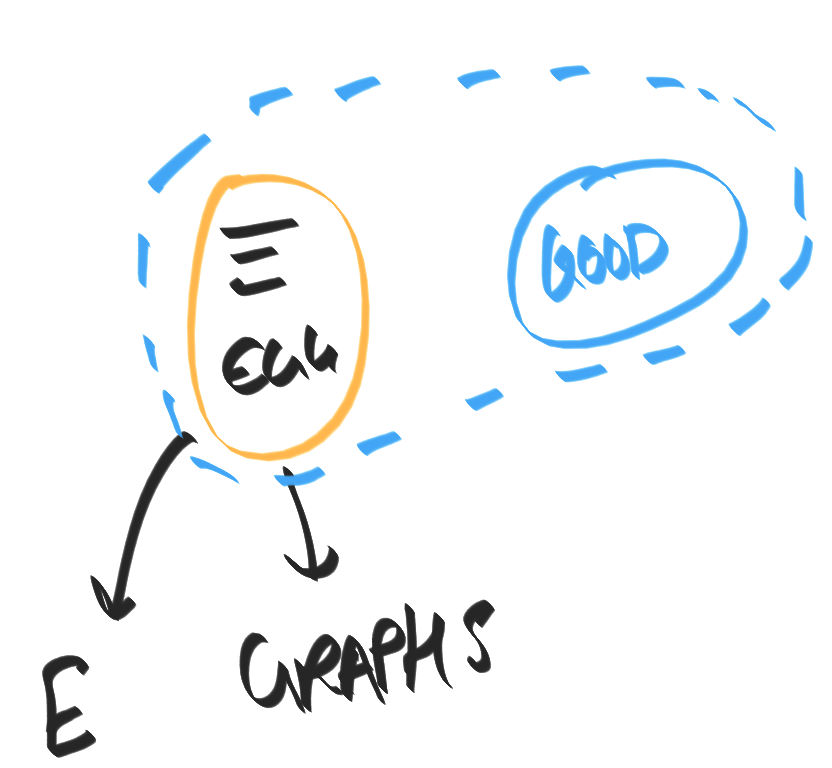 EGG
GOOD
E GRAPHS